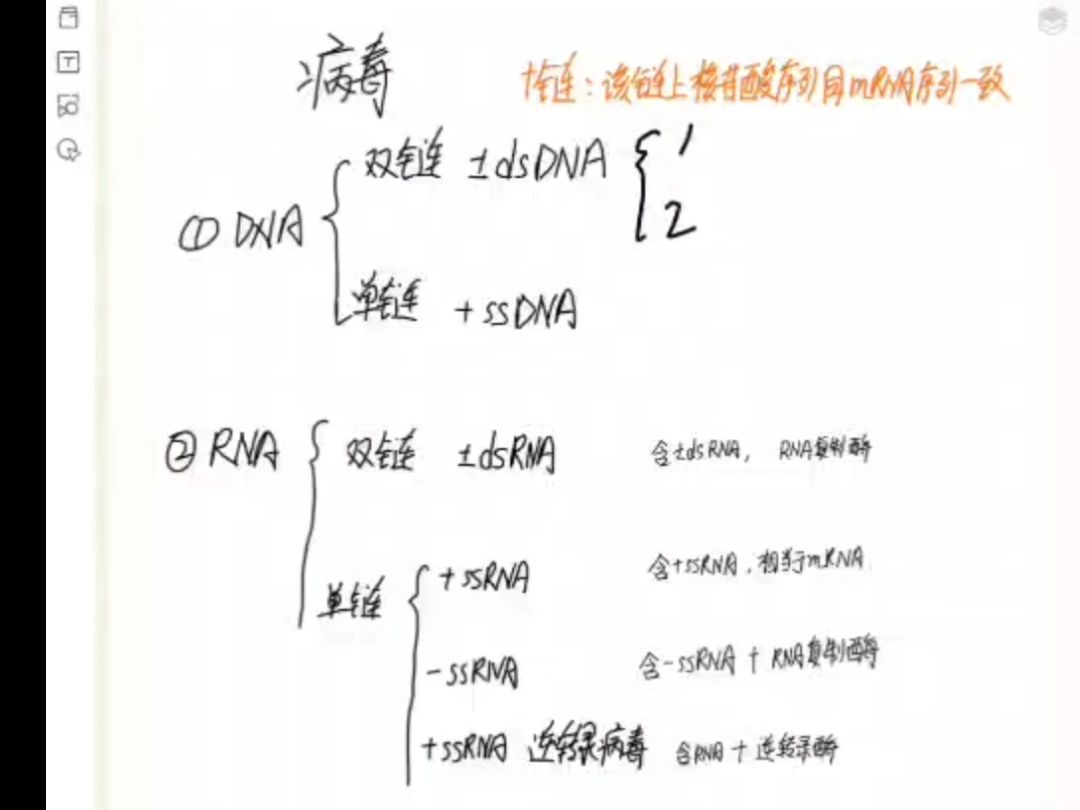 病毒
+链：该链上核苷酸序列同mRNA序列一致
双链 ±dsDNA { 1
2
① DNA
单链 +ssDNA
② RNA { 双链 ±dsRNA 含±dsRNA, RNA复制酶
单链 { +ssRNA 含+ssRNA，相当于mRNA
-ssRNA 含-ssRNA + RNA复制酶
+ssRNA 逆转录病毒 含RNA + 逆转录酶